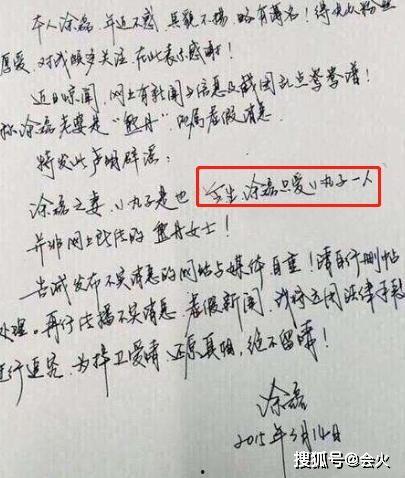 本人涂磊,年近不惑,其貌不扬,略有薄名!得衆多粉丝
厚爱,对我颇多关注,在此表示感谢!
近日惊闻,网上有新闻与信息及截图乱点鸳鸯谱!
称涂磊老婆是"熊丹"
特发此声明辟谣:
涂磊之妻,小丸子是也 今生,涂磊只爱小丸子一人
并非网上所传的熊丹女士!
告诫发布不实消息的网站与媒体自重!请自行删帖
处理。再行传播不实消息、虚假新闻,我将运用法律手段
进行追究,为捍卫爱情,还原真相,绝不留情!
涂磊
2015年3月14日
搜狐号@会火